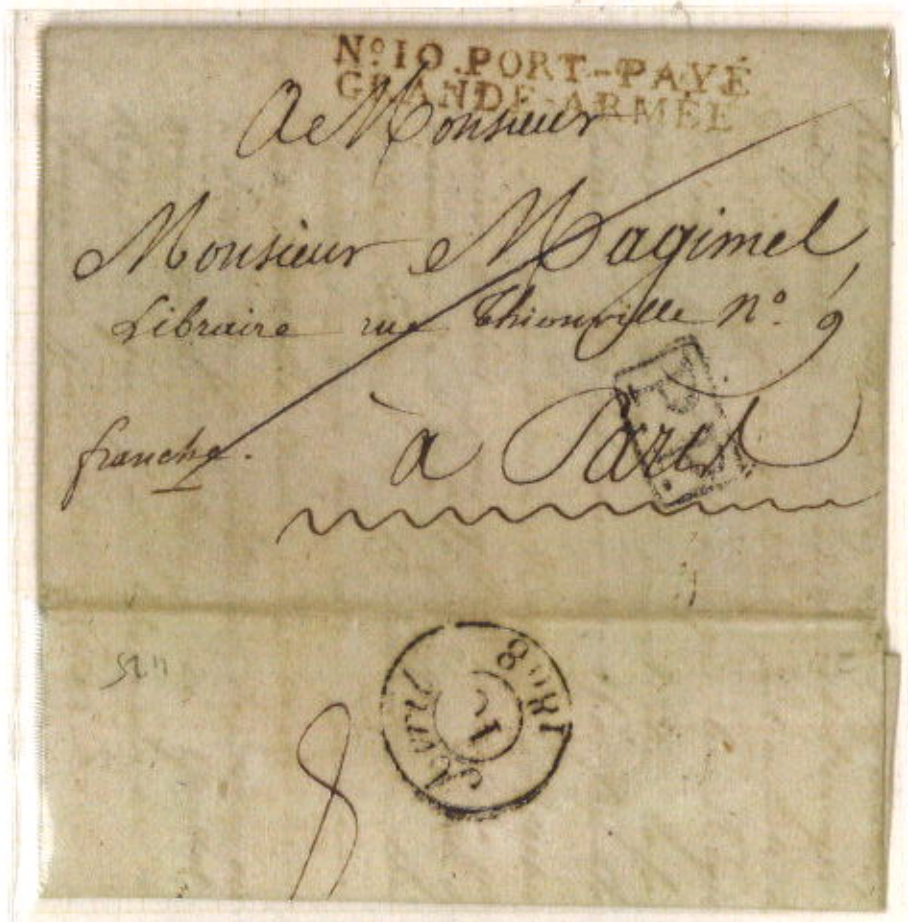 No. 10. PORT-PAYÉ
GRANDE-ARMÉE
A Monsieur
Monsieur Magimel,
Libraire rue Thionville No. 9
franche.
à Paris
P.P.
Avril
1808
8